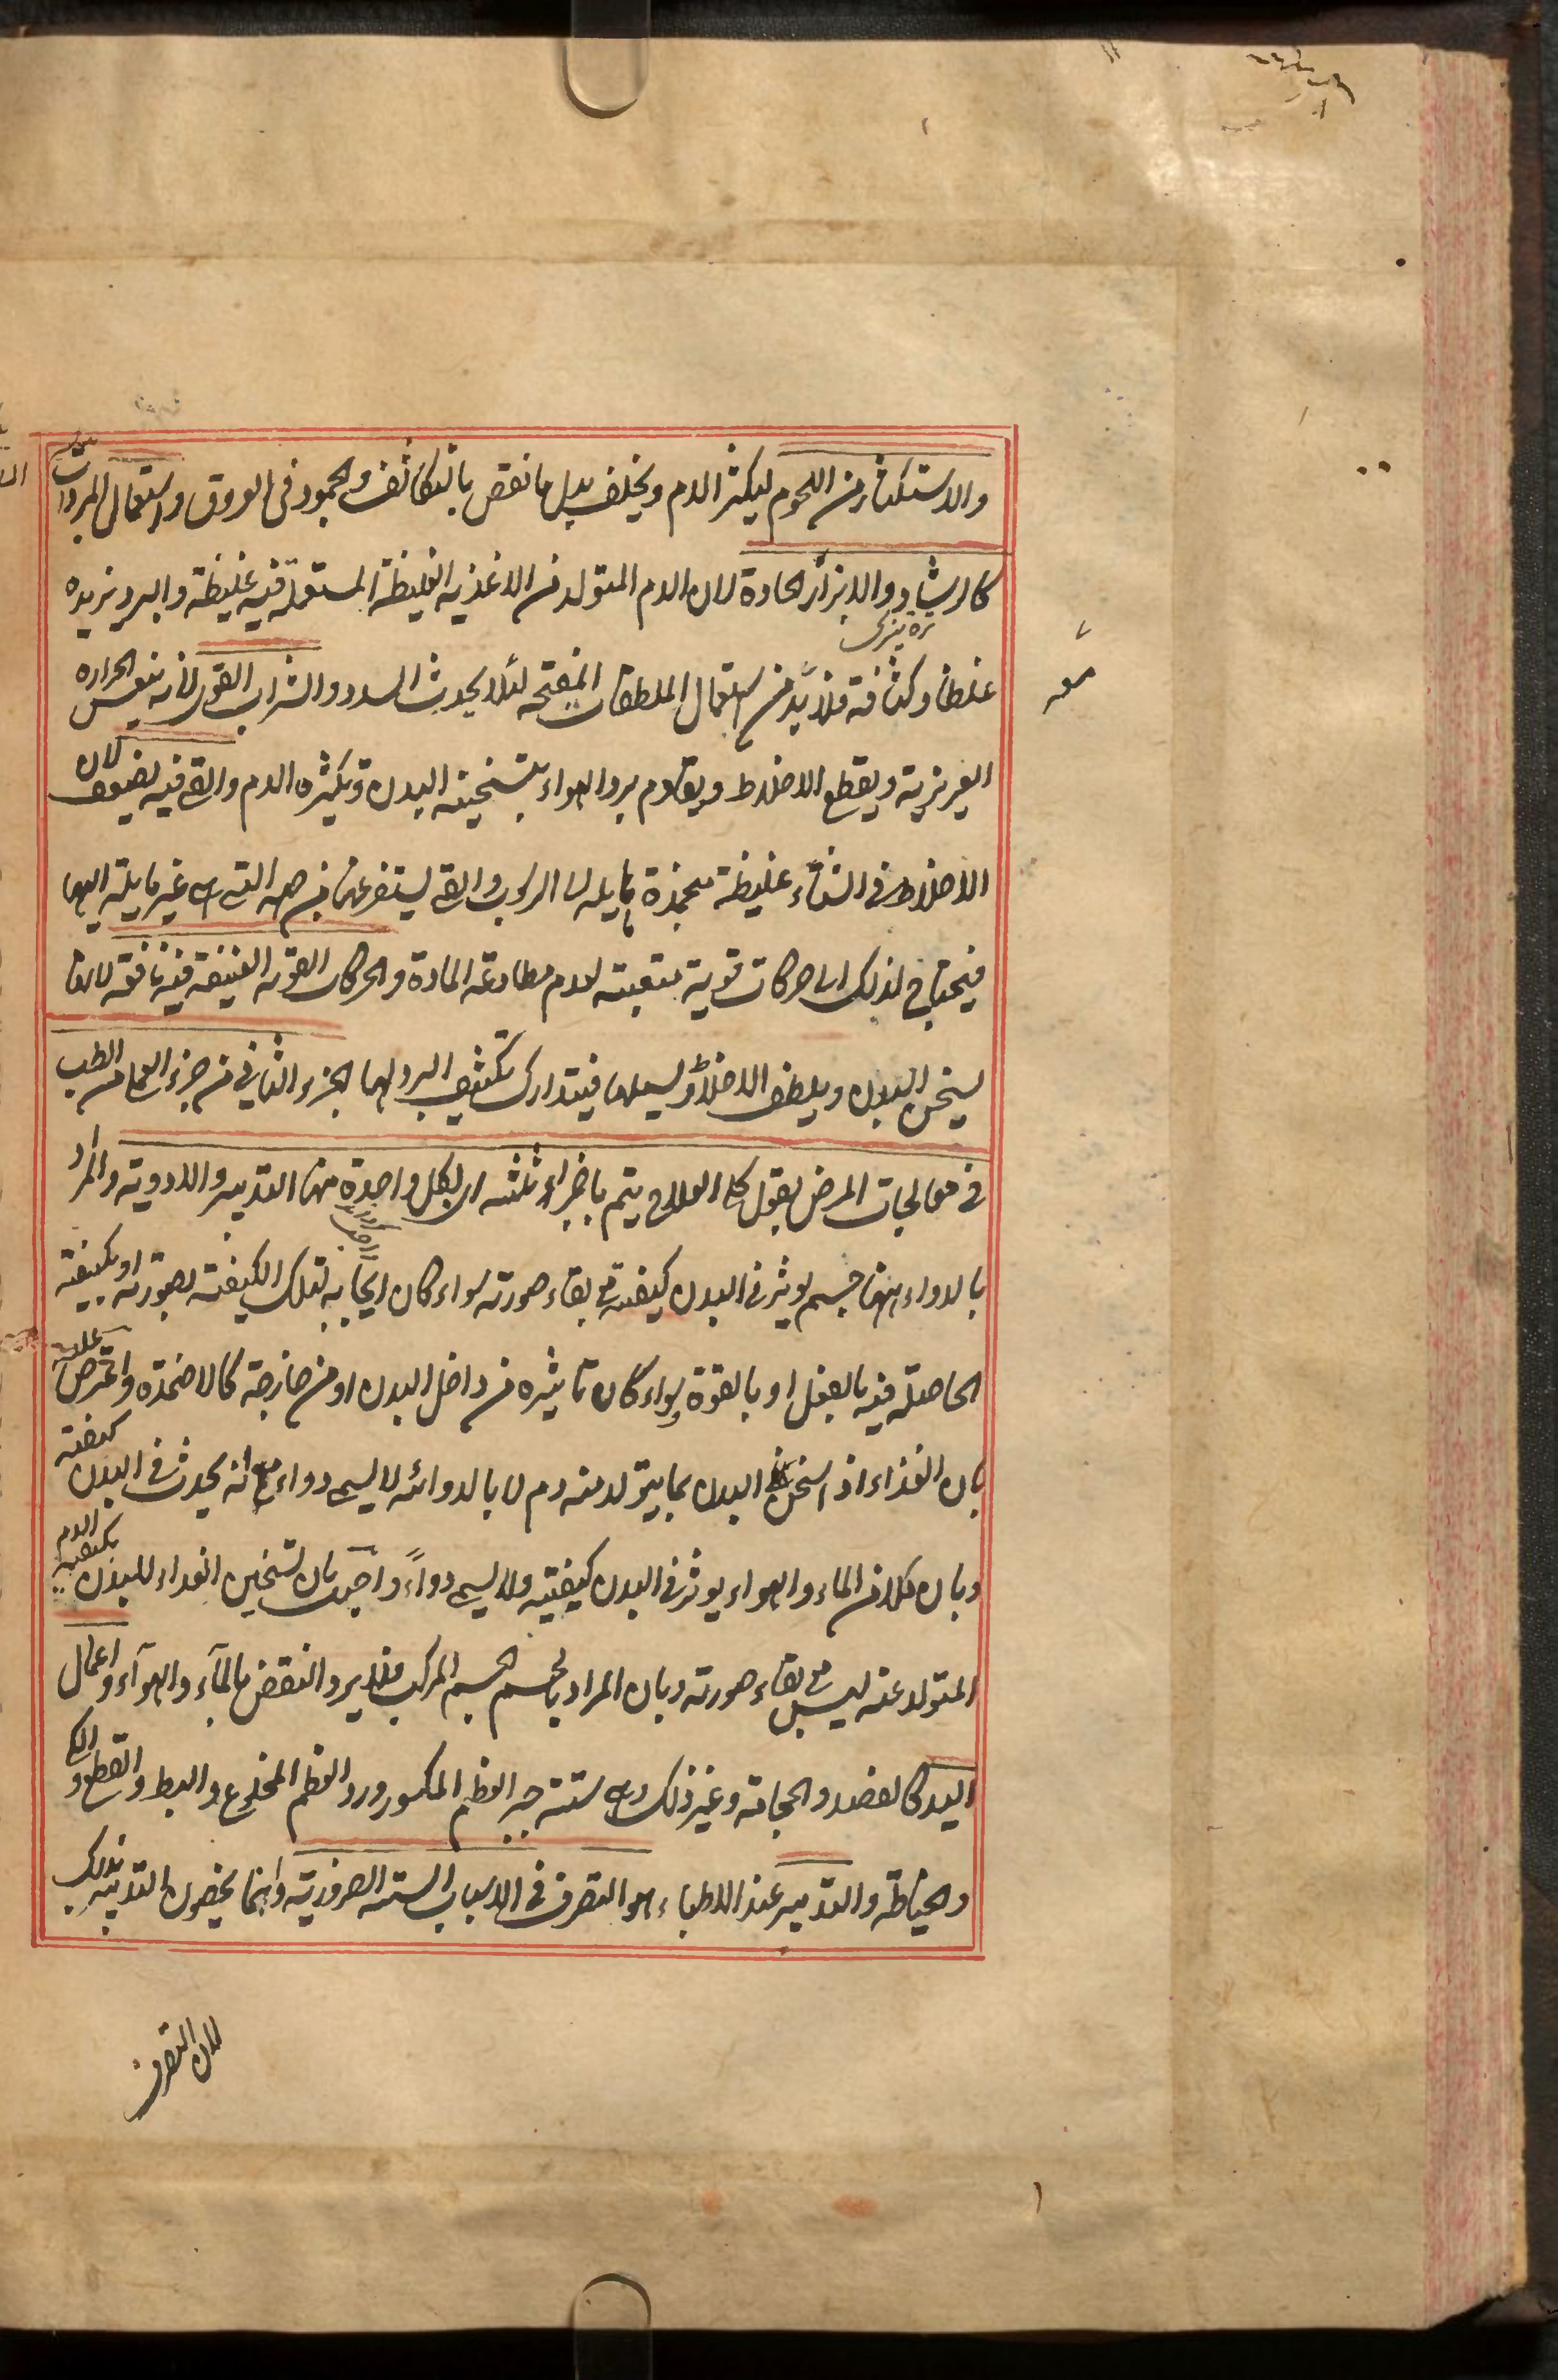 والاستكثار من اللحوم ليكثر الدم ويخلف بدل ما نقص بالتكاثف والجمود فى العروق واستعمال المبزرات
كالرشاد والابزار الحادة لان الدم المتولد من الاغذيه الغليظة المستعملة فيه غليظة والبرد يزيده
غلظا وكثافة فلا بد من استعمال الملطفات المفتحه لئلا يحدث السدد والشراب القوى لانه ينعش الحراره
الغريزية ويقطع الاخلاط ويقاوم برد الهواء بتسخينه البدن وتكثيره الدم والقئ فيه يضعف لان
الاخلاط فى الشتاء غليظة منجمدة مايله الى الرسوب والقى يستفرغها من جهة التى هى غير مايلة اليها
فيحتاج لذلك الى حركات قوية متعبته لعدم مطاوعة المادة والحركات القويه العنيفة فيه نافقة لانها
يسخن البدن ويلطف الاخلاط ويسيلها فيتدارك تكثيف البرد لها الجزء الثانى من جزء العملى من الطب
فى معالجات المرض بقول كلى العلاج يتم باجزاء ثلثه اى لكل واحدة منها التدبير والادوية والمراد
بالدواء ههنا جسم يوثر فى البدن كيفية مع بقاء صورته سواء كان ايجابه لتلك الكيفية بصورته او بكيفيته
الحاصلة فيه بالفعل او بالقوة سواء كان تاثيره من داخل البدن او من خارجه كالاضمدة واعترض عليه
بان الغذاء اذا سخن البدن بما يتولد منه دم لا بالدوائه لا يسمى دواء مع انه يحدث فى البدن كيفية
وبان كلا من الماء والهواء يوثر فى البدن كيفيته ولا يسمى دواءً واجيب بان تسخين الغداء للبدن بكيفيه الدم
المتولد عنه ليس مع بقاء صورته وبان المراد بالجسم الجسم المركب فلا يرد النقض بالمآء والهوآء واعمال
اليد كالفصد والحجامة وغير ذلك وهى ستة جبر العظم المكسور ورد العظم المخلوع والبط والقطع والكى
والخياطة والتدبير عند الاطباء هو التصرف فى الاسباب الستة الضرورية وانما يخصون التدبير بذلك
لان التصرف